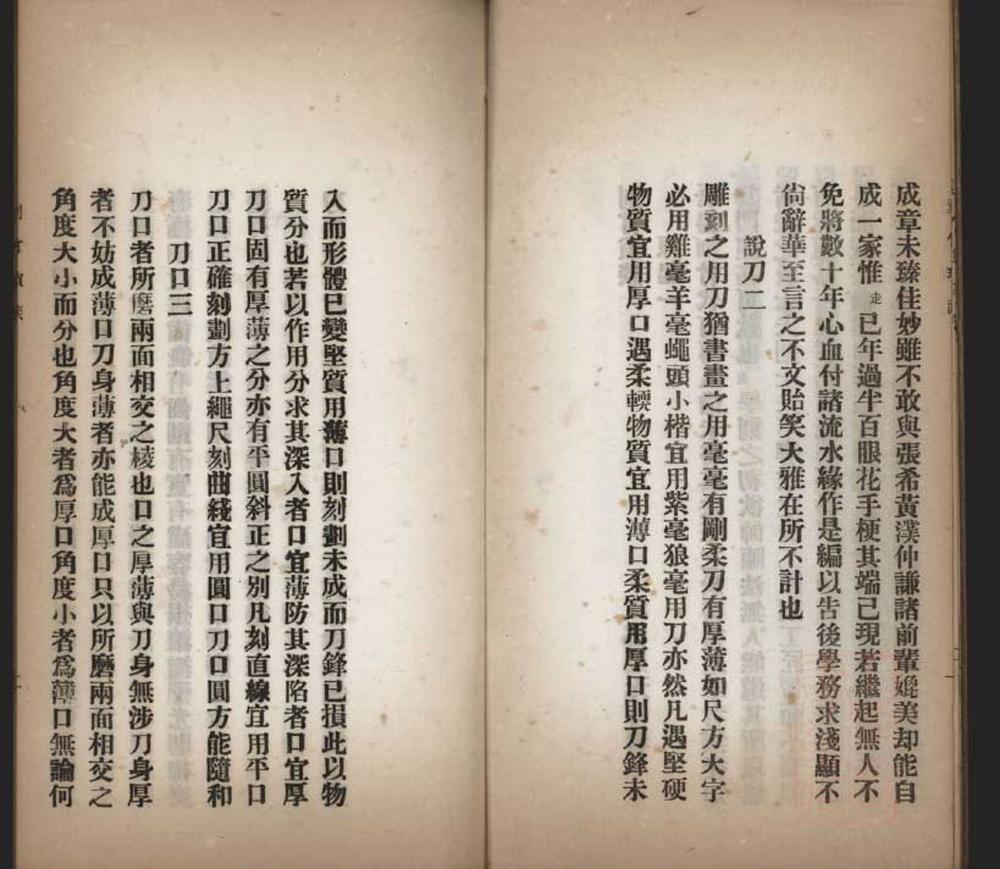 成章未臻佳妙雖不敢與張希黃濮仲謙諸前輩媲美却能自
成一家惟走已年過半百眼花手梗其端已現若繼起無人不
免將數十年心血付諸流水緣作是編以告後學務求淺顯不
尙辭華至言之不文貽笑大雅在所不計也
說刀二
雕刻之用刀猶書畫之用毫毫有剛柔刀有厚薄如尺方大字
必用雞毫羊毫蠅頭小楷宜用紫毫狼毫用刀亦然凡遇堅硬
物質宜用厚口遇柔輭物質宜用薄口柔質用厚口則刀鋒未
入而形體已變堅質用薄口則刻劃未成而刀鋒已損此以物
質分也若以作用分求其深入者口宜薄防其深陷者口宜厚
刀口固有厚薄之分亦有平圓斜正之別凡刻直線宜用平口
刀口正確刻劃方上繩尺刻曲綫宜用圓口刀口圓方能隨和
刀口三
刀口者所磨兩面相交之棱也口之厚薄與刀身無涉刀身厚
者不妨成薄口刀身薄者亦能成厚口只以所磨兩面相交之
角度大小而分也角度大者爲厚口角度小者爲薄口無論何